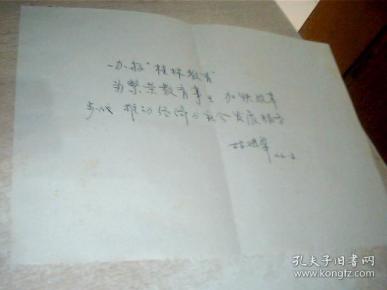 办好“桂林教育”
为繁荣教育事业 加快改革
步伐 推动经济与社会发展服务
孔夫子旧书网
www.kongfz.com